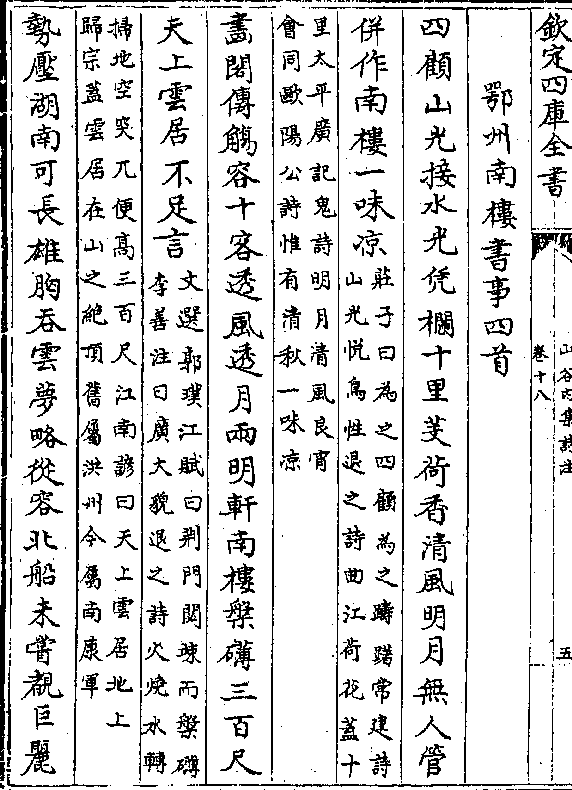 欽定四庫全書
山谷内集詩注
卷十八
五
鄂州南樓書事四首
四顧山光接水光凭欄十里芰荷香清風明月無人管
併作南樓一味凉
莊子曰為之四顧為之躊躇常建詩
山光悅鳥性退之詩曲江荷花蓋十
里太平廣記鬼詩明月清風良宵
會同歐陽公詩惟有清秋一味凉
畵閣傳觴容十客透風透月兩明軒南樓槃礴三百尺
天上雲居不足言
文選郭璞江賦曰荆門闕竦而槃礴
李善注曰廣大貌退之詩火燒水轉
掃地空突兀便髙三百尺江南諺曰天上雲居地上
歸宗蓋雲居在山之絶頂舊屬洪州今屬南康軍
勢壓湖南可長雄胸吞雲夢略從容北船未嘗覩巨麗